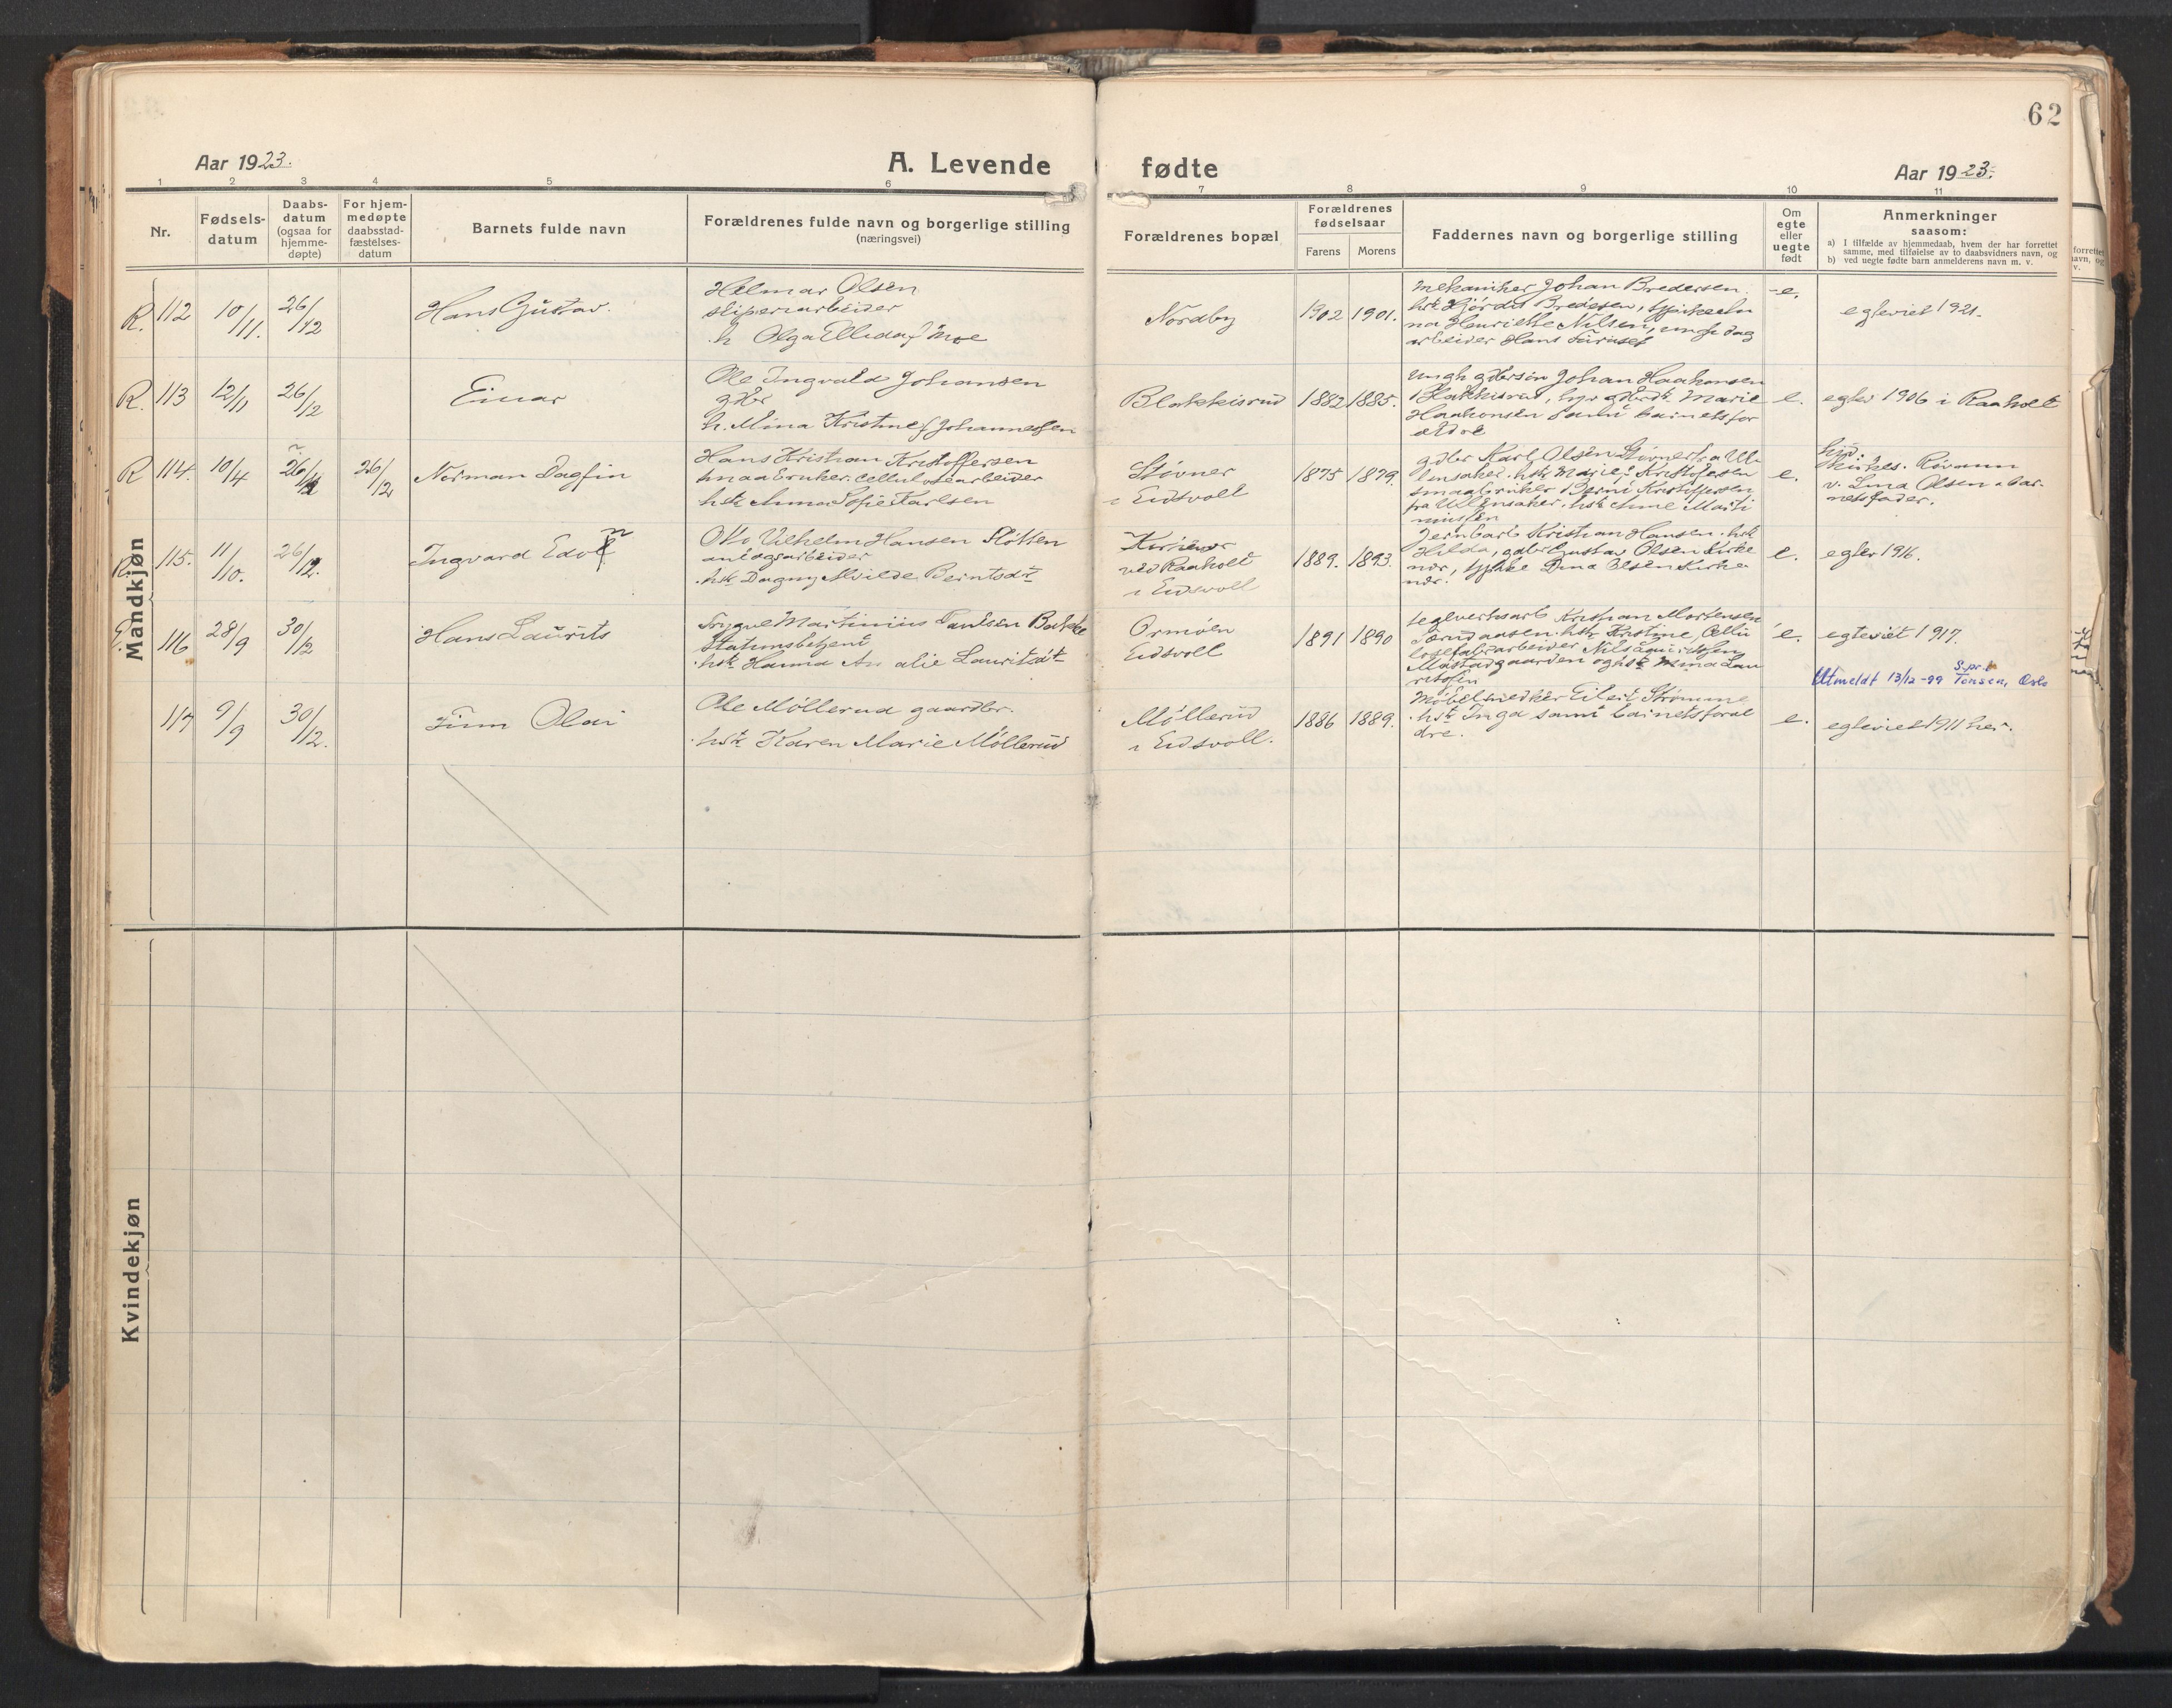 62
Aar 1923.
A. Levende
fødte
Aar 1923.
1 2 3 4 5 6 7 8 9 10 11
Nr.
Fødsels-
datum
Daabs-
datum
(ogsaa for
hjemme-
døpte)
For hjem-
medøpte
daabsstad-
fæstelses-
datum
Barnets fulde navn
Forældrenes fulde navn og borgerlige stilling
(næringsvei)
Forældrenes bopæl
Forældrenes
fødselsaar
Farens Morens
Faddernes navn og borgerlige stilling
Om
egte
eller
uegte
født
Anmerkninger
saasom:
a) I tilfælde av hjemmedaab, hvem der har forrettet
samme, med tilføielse av to daabsvidners navn, og
b) ved uegte fødte barn anmelderens navn m. v.
Mandkjøn
R. 112 10/11. 26/12
Hans Gustav.
Helmar Olsen
sliperiarbeider
h. Olga Ellida f Moe
Nordby
1902 1901.
mekaniker Johan Bredersen.
hstr Hjørdis Bredesen,
Henriette Nilsen, dag
arbeider Hans Furuset
e.
egteviet 1921.
R. 113 12/11 26/12
Einar
Ole Ingvald Johansen
gbr
h. Mina Kristine f Johannessen
Blakkisrud
1882 1885.
ungk gbrsøn Johan Haakonsen
Blakkisrud, Marie
Haakonsen samt barnets for
ældre
e.
egtev 1906 i Raaholt
R 114. 10/4 26/12 26/12
Norman Dagfin
Hans Kristian Kristoffersen
smaabruker. cellulosearbeider
hstr Anna Sofie Karlsen
Støvner
i Eidsvoll
1875 1879.
gdbr Karl Olsen Støvner fra Ul
lensaker. hstr Marie Kristofersen
smaabruker Bernt Kristoffersen
fra Ullensaker. hstr Anne Marti
e.
v. Lina Olsen o bar-
nets fader.
R. 115. 11/10. 26/12.
Ingvard Edvin
Otto Vilhelm Hansen Sletten
anlægsarbeider
hstr Dagny Alvilde Berntsdtr
Kirkenær
ved Raaholt
i Eidsvoll
1889. 1893.
Jernbarb Kristian Hansen. hstr
Hilda, gdbr Gustav Olsen Kirke
nær, Dina Olsen Kirke-
nær.
e.
egtev 1916.
116 28/9 30/12
Hans Laurits
Trygve Martinius Paulsen Bakke
Stationsbetjent
hstr Hanna Amalie Lauritsdt-
Ormøen
Eidsvoll
1891 1890
teglverksarb Kristian Mortensen
hstr Kristine, Cellu
losefabrarbeider Nils Lauritssen
Mastadgaarden og hstr Mina Lau
ritssen
e.
egteviet 1917.
Utmeldt 13/12-99 S.pr.k Tonsen, Oslo
117 9/9 30/12.
Finn Olai
Ole Møllerud gaardbr.
hstr Karen Marie Møllerud
Møllerud
i Eidsvoll.
1886 1889.
Møbelsnedker Eilert Strømme
hstr Inga samt barnets foræl
dre.
e.
egteviet 1911 her.
Kvindekjøn
forrettet
navn, og
v.